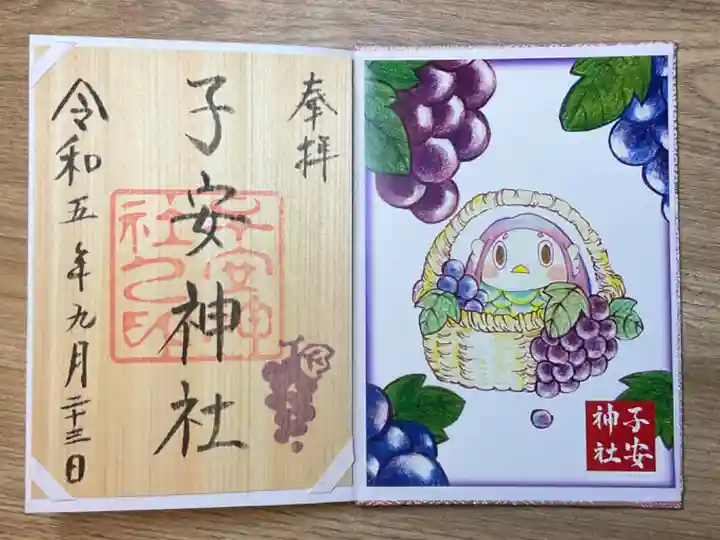 奉拝
子安神社
子安神
社之印
令和五年九月二十三日
子安
神社